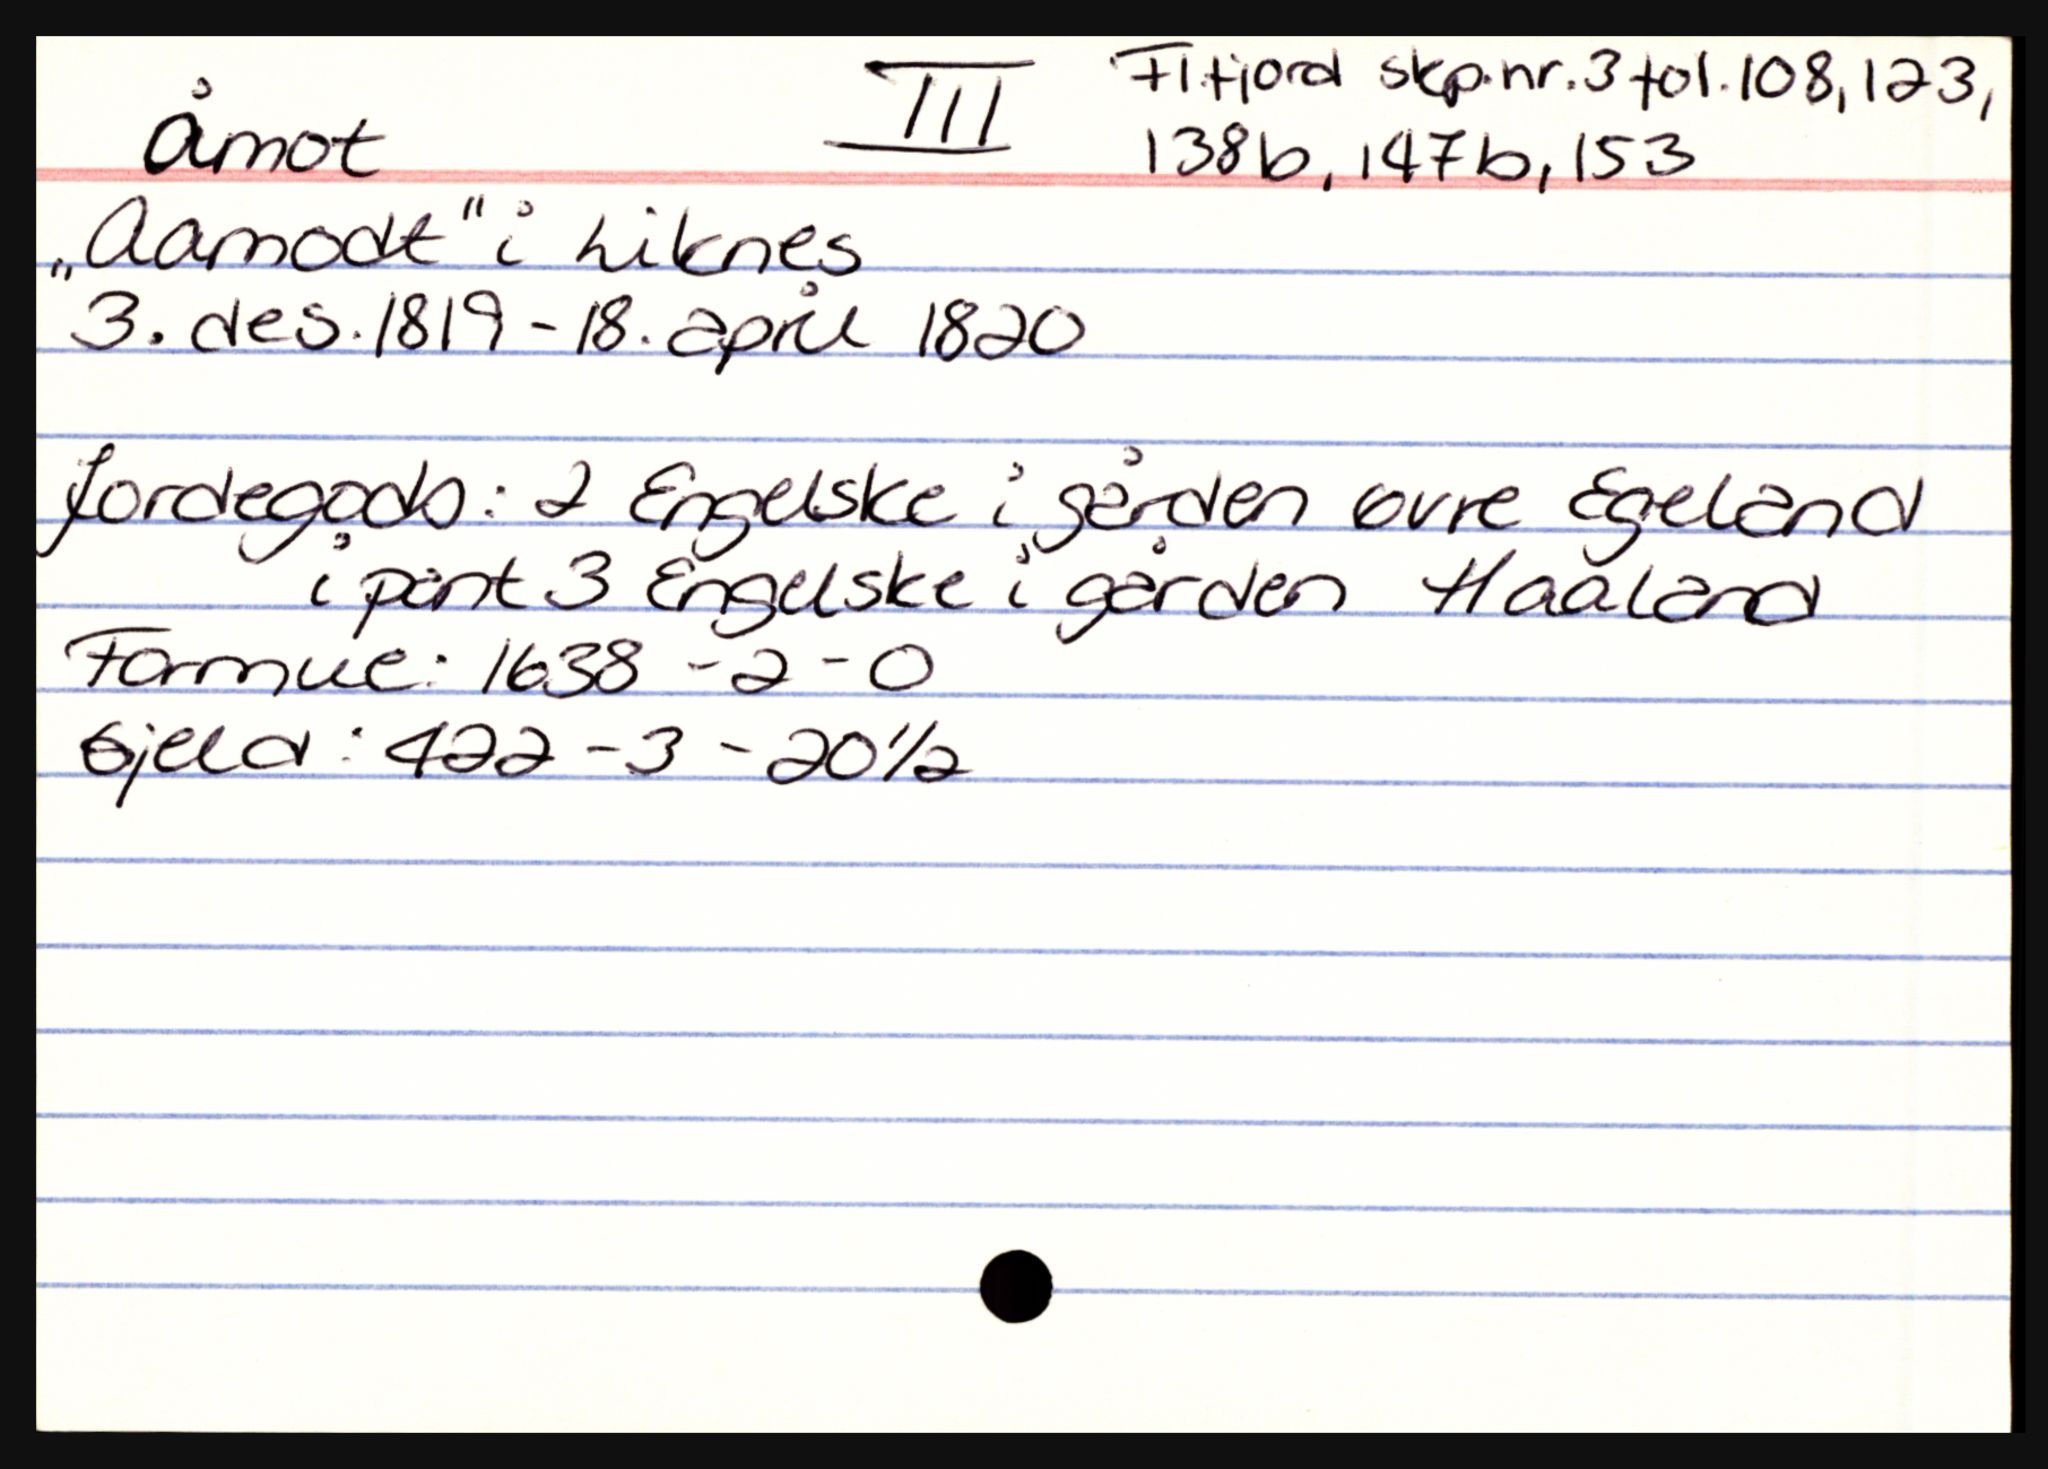 åmot III Fl.fjord skp.nr. 3 fol. 108, 123,
138b, 147b, 153
„Aamodt" i Liknes
3. des. 1819 - 18. april 1820
Jordegods: 2 Engelske i gården øvre Egeland
i pant 3 Engelske i gården Haaland
Formue: 1638 - 2 - 0
Gjeld: 422 - 3 - 20 1/2